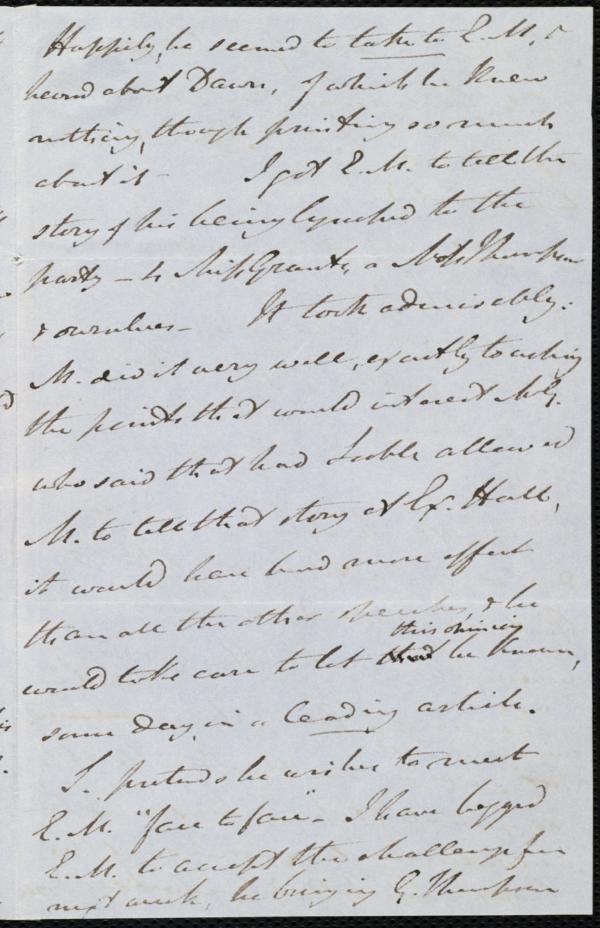 Happily, he seemed to take to E. M. &
heard about Dawn, of which he knew
nothing, though printing so much
about it I got E. M. to tell the
story of his being lynched to the
party — to Miss Grants, a Miss Thompson
& ourselves — It took admirably:
M. did it very well, exactly touching
the points that would interest McG.
who said that had Scoble allowed
M. to tell that story at Ex. Hall,
it would have had more effect
than all the other speeches, & he
would take care to let this opinion be known,
some day, in a leading article.
S. pretends he wishes to meet
E. M. "face to face" — I have begged
E. M. to accept the challenge for
next week, he bringing G. Thompson